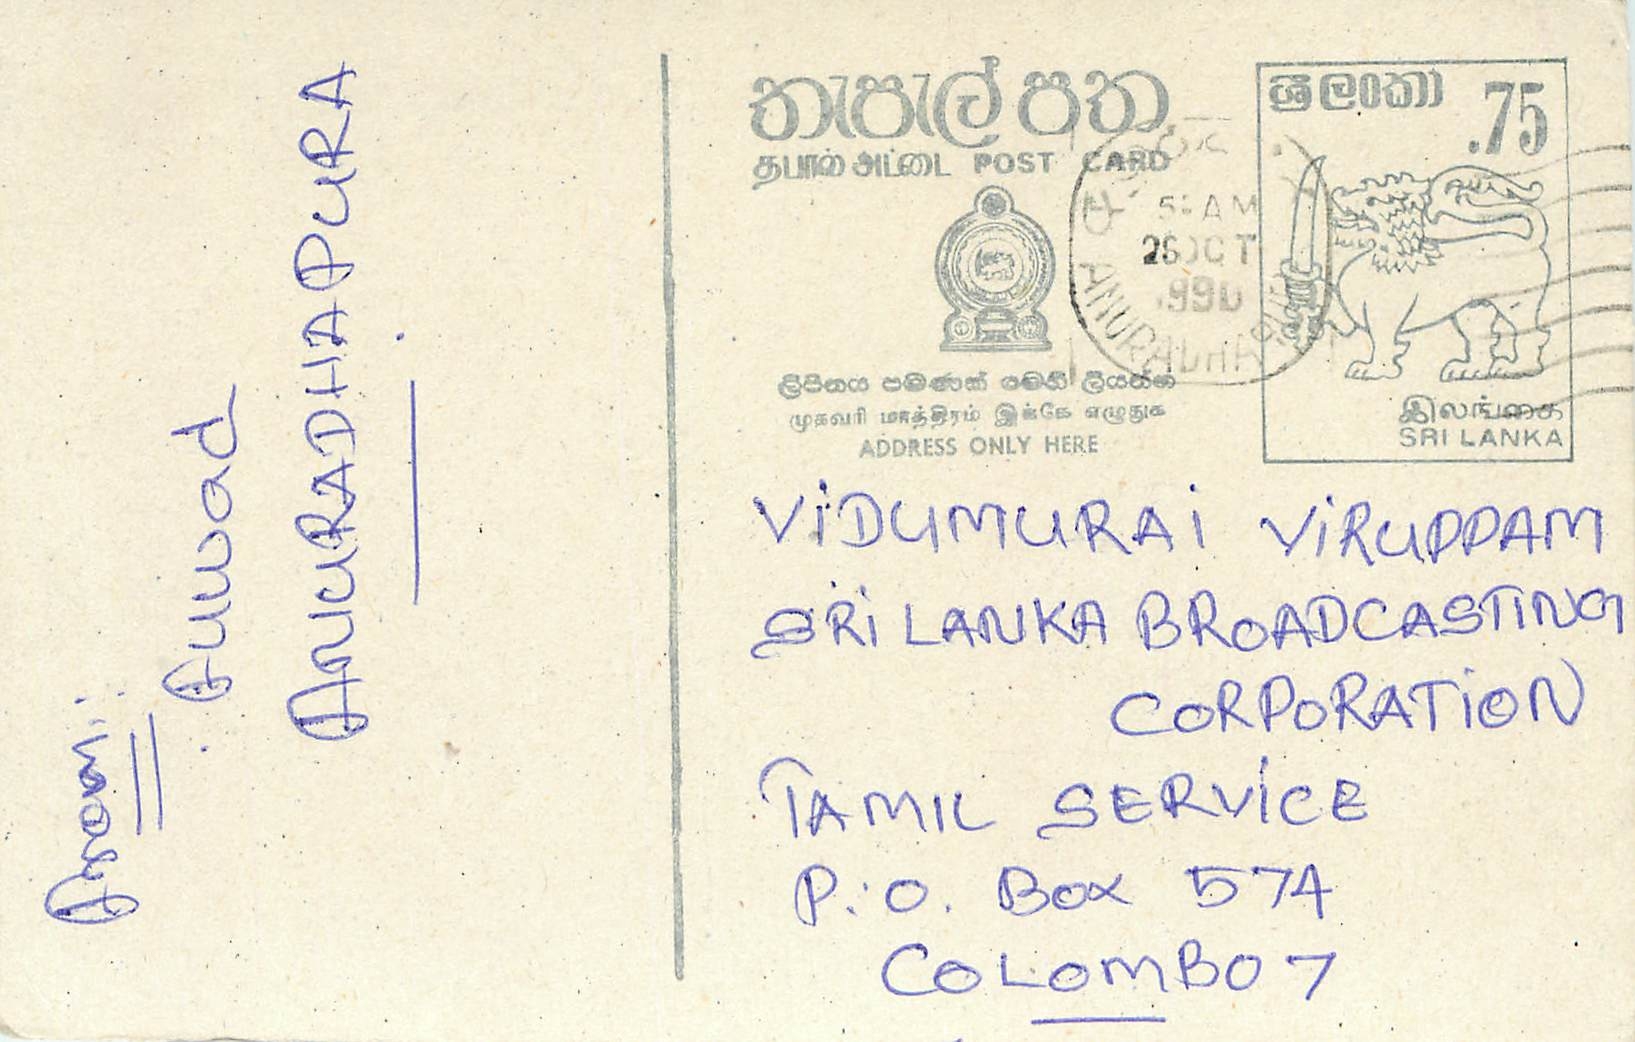 From:
Auwad
ANURADHAPURA
තැපැල් පත
தபால் அட்டை POST CARD
ලිපිනය පමණක් මෙහි ලියන්න
முகவரி மாத்திரம் இங்கே எழுதுக
ADDRESS ONLY HERE
ශ්‍රී ලංකා .75
இலங்கை
SRI LANKA
5 AM
26 OCT
1990
ANURADHAPURA
ViDUMURAi ViRUPPAM
SRi LANKA BROADCASTING
CORPORATiON
TAMIL SERVICE
P.O. Box 574
COLOMBO 7